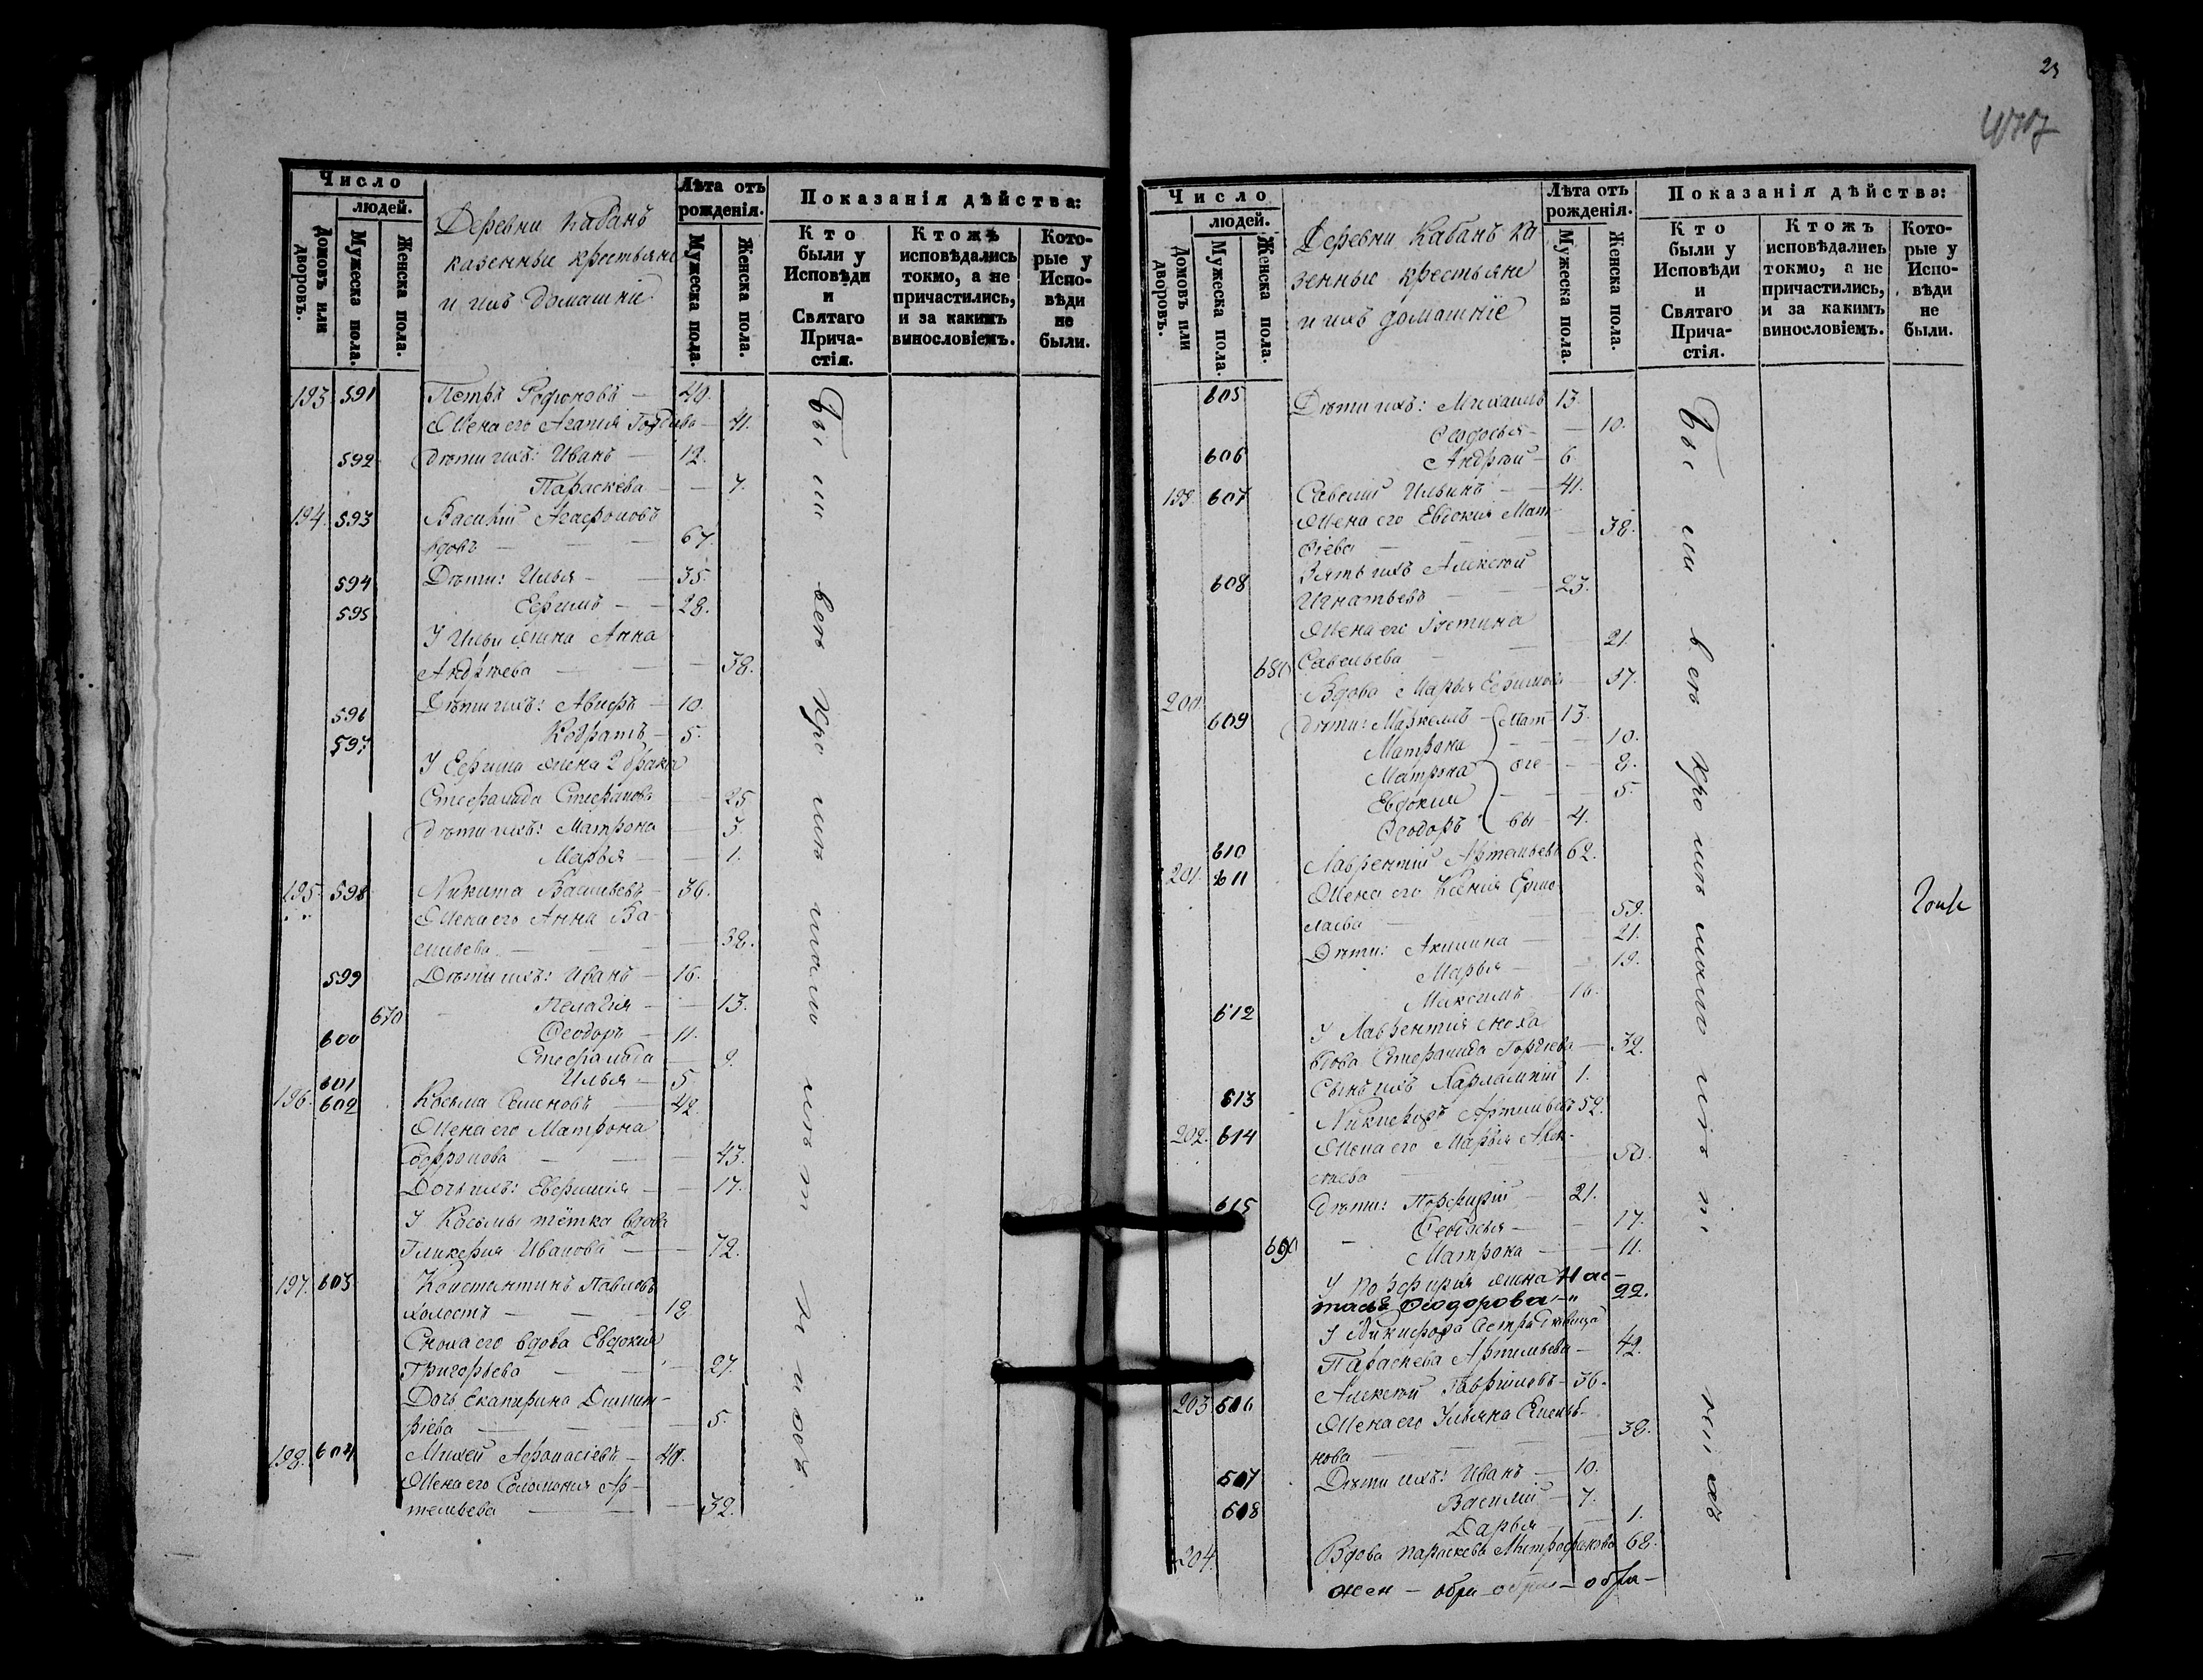 Число
людей.
Домовъ или дворовъ.
Мужеска пола.
Женска пола.
Деревни Кабанъ
казенные крестьяне
и ихъ домашніе
Лѣта отъ рожденія.
Мужеска пола.
Женска пола.
Показанія дѣйства:
Кто были у Исповѣди и Святаго Причастія.
Ктожъ исповѣдались токмо, а не причастились, и за какимъ винословіемъ.
Которые у Исповѣди не были.
193. 591 Петръ Родіоновъ — 40.
Жена его Агапія — 41.
592 Дѣти ихъ: Иванъ — 12.
Параскева — 7.
194. 593 Василій Агафоновъ
вдовъ — 67.
594 Дѣти: Илья — 35.
595 Ефимъ — 28.
У Ильи жена Анна
Андрѣева — 38.
596 Дѣти ихъ: — 10.
597 Кодратъ — 5.
У Ефима жена 2 брака
Стефанида Стефанова 25
Дѣти ихъ: Матрона 3.
Марья — 1.
195. 598 Никита Васильевъ — 36.
Жена его Анна Ва-
сильева — 38.
599 Дѣти ихъ: Иванъ — 16.
670 Пелагія — 13.
600 Ѳеодоръ — 11.
Стефанида — 9.
601 Илья — 5.
196. 602 Косьма Семеновъ — 42.
Жена его Матрона
Софронова — 43.
Дочь ихъ: Евфимія — 17.
У Косьмы тётка вдова
Гликерия Иванова — 72.
197. 603 Константинъ Павловъ
холостъ — 18
Сноха его вдова Евдокия
Григорьева — 27.
Дочь Екатерина Димит-
ріева — 5.
198. 604 Михей Афанасіевъ — 40.
Жена его Соломонія Ар-
темьева — 32.
Были всѣ кромѣ малолѣтнихъ
23
Число
людей.
Домовъ или дворовъ.
Мужеска пола.
Женска пола.
Деревни Кабанъ ка
зенные крестьяне
и ихъ домашніе
Лѣта отъ рожденія.
Мужеска пола.
Женска пола.
Показанія дѣйства:
Кто были у Исповѣди и Святаго Причастія.
Ктожъ исповѣдались токмо, а не причастились, и за какимъ винословіемъ.
Которые у Исповѣди не были.
605 Дѣти ихъ: Михаилъ 13.
Ѳеодосья — 10.
606 Андрей — 6
199. 607 Савелій Ильинъ — 41.
Жена его Евдокия Мат-
ѳіева — 38.
608 Зять ихъ Алексѣй
Игнатьевъ — 23.
Жена его Іустина
680 Савельева — 21.
200. Вдова Марья Ефимова — 37.
609 Дѣти: Маркеллъ Мат- 13.
Матрона — 10.
Матрона ѳіе — 8.
Евдокия — 5.
610 Ѳеодоръ вы — 4.
201. 611 Лаврентій Артемьевъ 62.
Жена его Ксенія Ермо-
лаева — 59.
Дѣти: Акилина — 21.
Марья — 19.
612 Максимъ — 16.
У Лаврентія сноха
вдова Стефанида Гордѣева — 32.
613 Сынъ ихъ Харлампій 1.
202. 614 Никифоръ Артемьевъ 52.
Жена его Марья Алек-
сѣева — 50.
615 Дѣти: Порфирій — 21.
Ѳеодосья — 17.
690 Матрона — 11.
У Порфирія жена Нас-
тасья Ѳеодорова — 22.
У Никифора сестра дѣвица
Параскева Артемьева — 42.
203 506 Алексѣй Гавриловъ — 36.
Жена его Ульяна
нова — 38.
507 Дѣти ихъ: Иванъ — 10.
508 Василій — 7.
Дарья 1.
204. Вдова Параскева Митрофанова 68.
Были всѣ кромѣ малолѣтнихъ